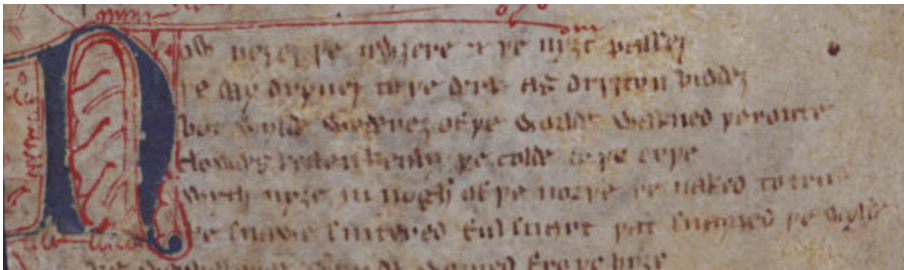 Now neȝez þe nwȝere & þe nyȝt passez
þe day dryuez to þe derk as dryȝtyn biddez
bot wylde wederez of þe worlde wakned þeroute
clowdes kesten kenly þe colde to þe erþe
wyth nyȝe in nogh of þe norþe þe naked to tene
þe snawe snitered ful snart þat snayped þe wylde
wapped fro þe hyȝe